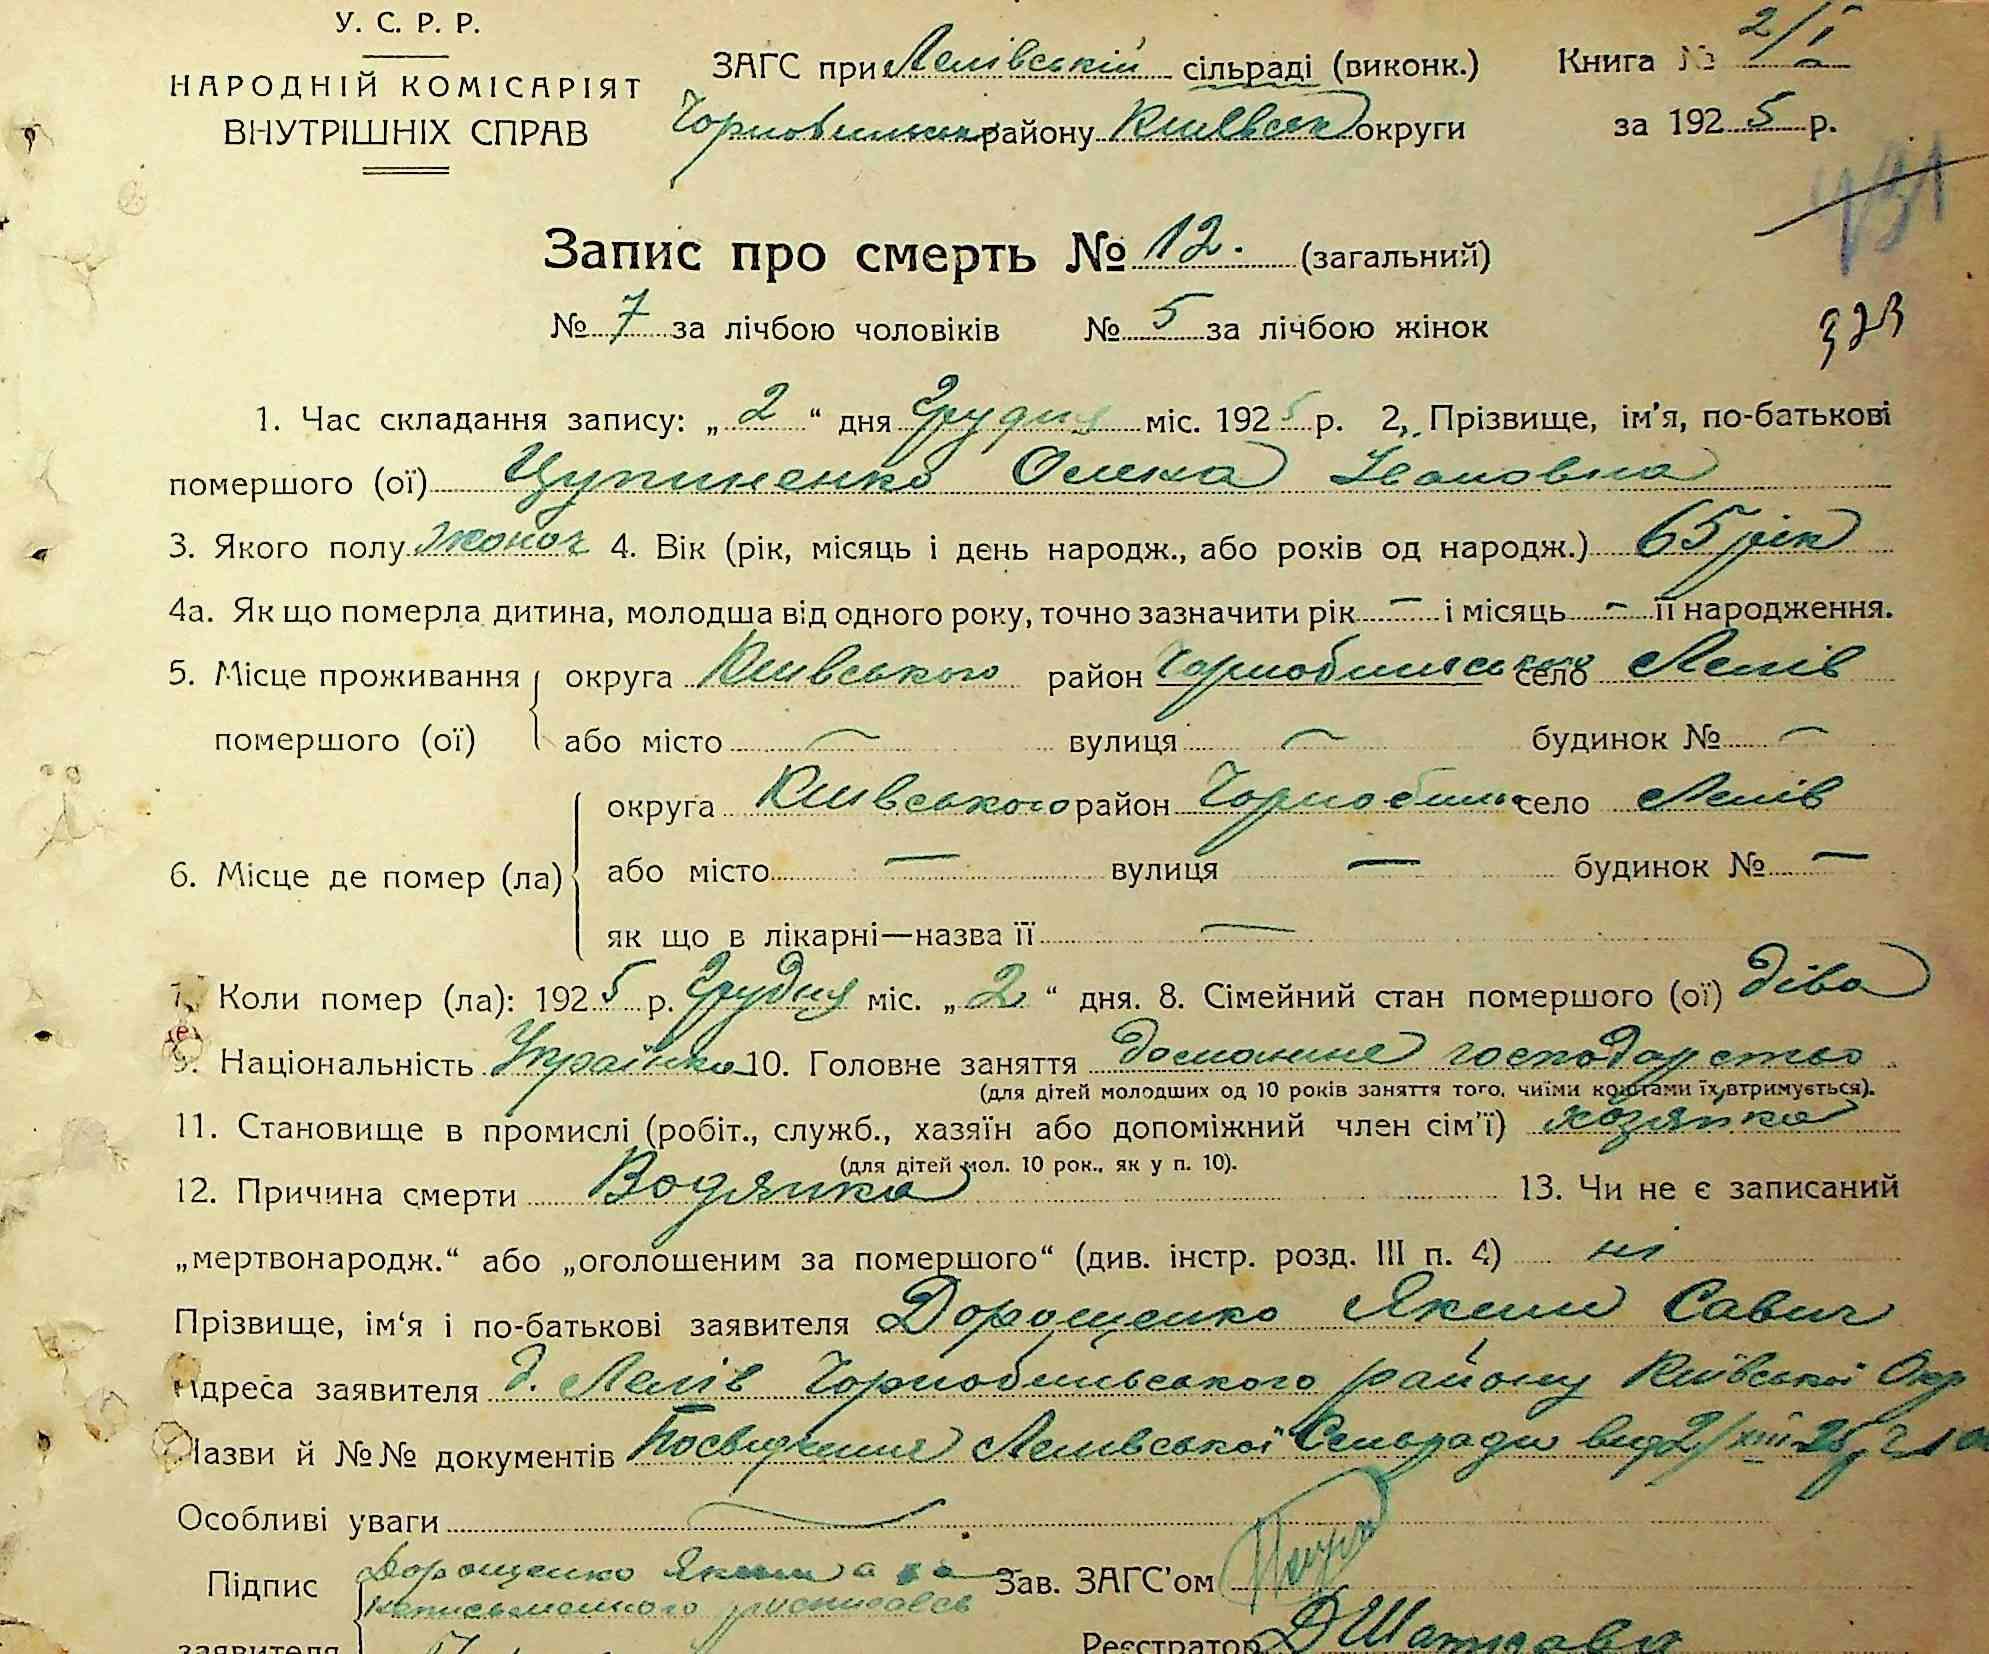 У. С. Р. Р.
НАРОДНІЙ КОМІСАРІЯТ
ВНУТРІШНІХ СПРАВ
ЗАГС при Лелівській сільраді (виконк.)
Книга № 2/I
Чорнобильськ району Київськ округи
за 1925 р.
431
Запис про смерть № 12. (загальний)
№ 7 за лічбою чоловіків № 5 за лічбою жінок
323
1. Час складання запису: „2“ дня Грудня міс. 1925 р. 2, Прізвище, ім'я, по-батькові
помершого (ої) Цупиненко Олена Івановна
3. Якого полу жоноч 4. Вік (рік, місяць і день народж., або років од народж.) 65 рік
4а. Як що померла дитина, молодша від одного року, точно зазначити рік — і місяць — її народження.
5. Місце проживання округа Київського район Чорнобильське село Лелів
помершого (ої) або місто — вулиця — будинок № —
округа Київського район Чорнобильс село Лелів
6. Місце де помер (ла) або місто — вулиця — будинок № —
як що в лікарні—назва її —
7. Коли помер (ла): 1925 р. Грудня міс. „2“ дня. 8. Сімейний стан помершого (ої) діва
9. Національність Українка 10. Головне заняття домашне господарство
(для дітей молодших од 10 років заняття того, чиїми коштами їх втримується).
11. Становище в промислі (робіт., служб., хазяїн або допоміжний член сім'ї) хозяйка
(для дітей мол. 10 рок., як у п. 10).
12. Причина смерти Водянка 13. Чи не є записаний
„мертвонародж.“ або „оголошеним за помершого“ (див. інстр. розд. III п. 4) ні
Прізвище, ім'я і по-батькові заявителя Дорошенко Яким Савич
Адреса заявителя д. Лелів Чорнобильського району Київської Окр
Назви й №№ документів Посвідчение Лелівської Сельради від 2/XII 25
Особливі уваги
Підпис Дорошенко Яким а за Зав. ЗАГС'ом
неписьменного росписався
заявителя Реєстратор